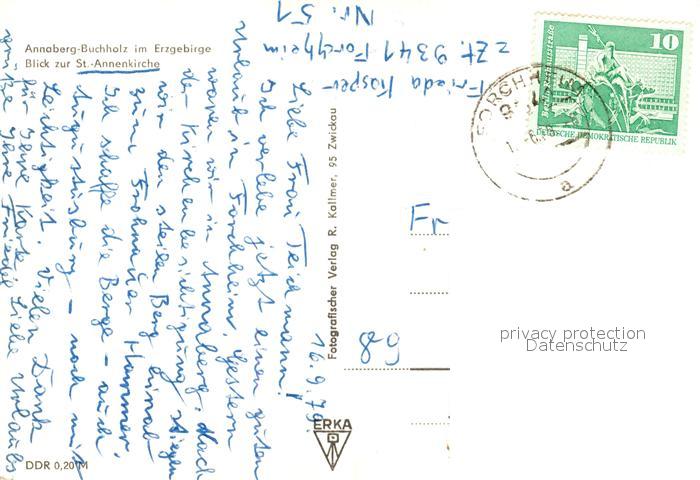 Annaberg-Buchholz im Erzgebirge
Blick zur St.-Annenkirche
Frieda Kasper
z Zt. 9341 Forchheim
Nr. 51
10
DEUTSCHE DEMOKRATISCHE REPUBLIK
FORCHHEIM
a
16.9.79.
Liebe Frau Teichmann!
Ich verlebe jetzt einen guten
Urlaub in Forchheim. Gestern
waren wir in Annaberg. Nach
der Kirchenbesichtigung stiegen
wir den steilen Berg hinab
zum Frohnauer Hammer.
Ich schaffe die Berge - auch
Augustusburg - noch mit
Leichtigkeit. Vielen Dank
für Ihre Karte. Liebe Urlaubs
grüße Ihre Friedel
Fr
89
Fotografischer Verlag R. Kallmer, 95 Zwickau
ERKA
DDR 0,20 M
privacy protection
Datenschutz